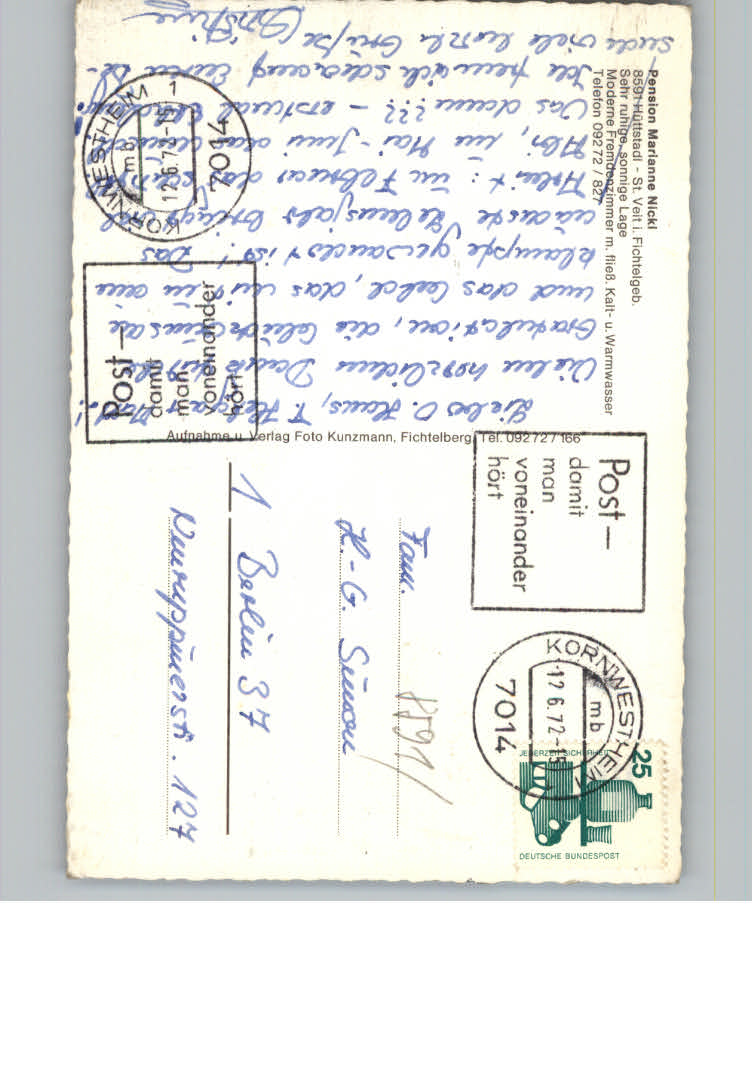 Pension Marianne Nickl
8591 Hüttstadl - St. Veit i. Fichtelgeb.
Sehr ruhige, sonnige Lage
Moderne Fremdenzimmer m. fließ. Kalt- u. Warmwasser
Telefon 09272 / 827
Liebe O. Klaus, T. Helga
Vielen herzlichen Dank für die
Gratulation, die Glückwünsche
und das Geld, das in ein
klampfe gewandert ist! Das
nächste Halbjahr bringt viel
Arbeit: im Februar das schriftl.
Abi, im Mai-Juni das mündliche.
Das dann??? - erstmal
Ich freu mich schon und
sende viele herzl. Grüße Christine
Aufnahme u. Verlag Foto Kunzmann, Fichtelberg, Tel. 09272 / 166
Post—
damit
man
voneinander
hört
KORNWESTHEIM 1
mb
12.6.72-15
7014
Post—
damit
man
voneinander
hört
KORNWESTHEIM 1
mb
12.6.72-15
7014
25
JEDERZEIT SICHERHEIT
DEUTSCHE BUNDESPOST
Fam.
H.-G. Simon
1 Berlin 37
Neuruppinerstr. 127
8591